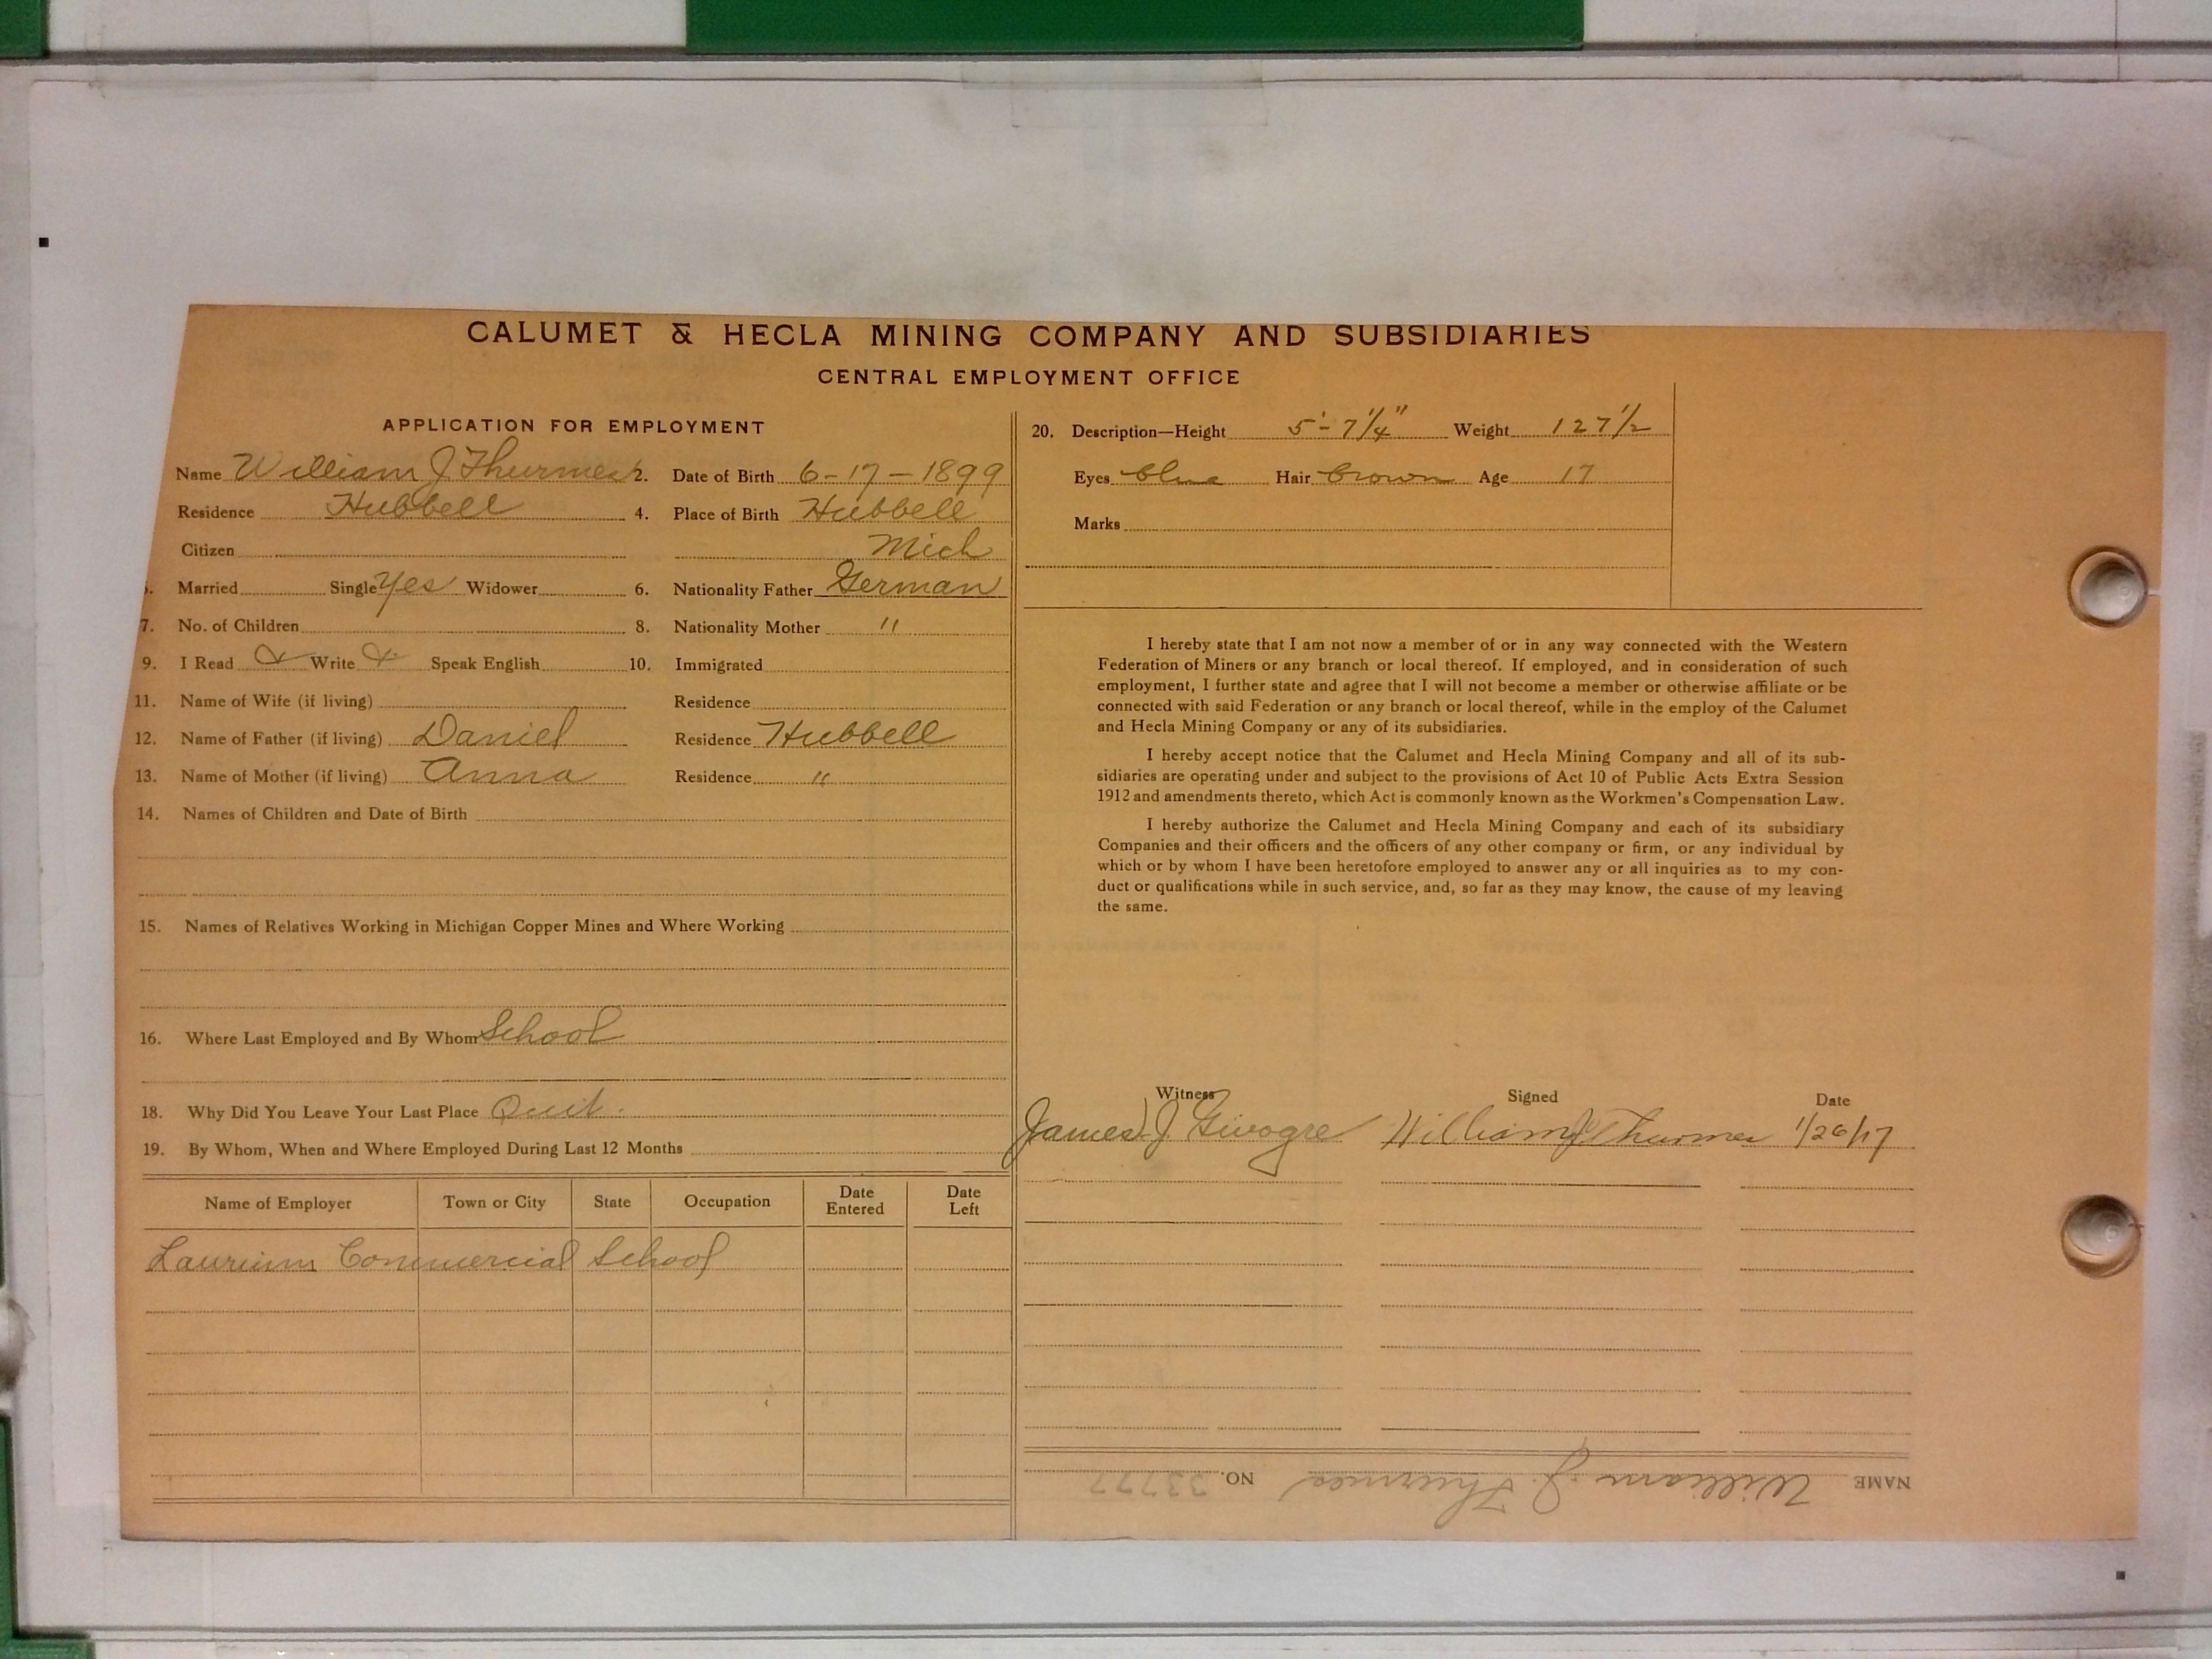 CALUMET & HECLA MINING COMPANY AND SUBSIDIARIES
CENTRAL EMPLOYMENT OFFICE
APPLICATION FOR EMPLOYMENT
Name William J Thurmes 2. Date of Birth 6-17-1899
Residence Hubbell 4. Place of Birth Hubbell
Citizen Mich
Married Single Yes Widower 6. Nationality Father German
7. No. of Children 8. Nationality Mother "
9. I Read Write Speak English 10. Immigrated
11. Name of Wife (if living) Residence
12. Name of Father (if living) Daniel Residence Hubbell
13. Name of Mother (if living) Anna Residence "
14. Names of Children and Date of Birth
15. Names of Relatives Working in Michigan Copper Mines and Where Working
16. Where Last Employed and By Whom School
18. Why Did You Leave Your Last Place Quit.
19. By Whom, When and Where Employed During Last 12 Months
Name of Employer Town or City State Occupation Date Entered Date Left
Laurium Commercial School
20. Description—Height 5'-7 1/4" Weight 127 1/2
Eyes blue Hair brown Age 17
Marks
I hereby state that I am not now a member of or in any way connected with the Western
Federation of Miners or any branch or local thereof. If employed, and in consideration of such
employment, I further state and agree that I will not become a member or otherwise affiliate or be
connected with said Federation or any branch or local thereof, while in the employ of the Calumet
and Hecla Mining Company or any of its subsidiaries.
I hereby accept notice that the Calumet and Hecla Mining Company and all of its sub-
sidiaries are operating under and subject to the provisions of Act 10 of Public Acts Extra Session
1912 and amendments thereto, which Act is commonly known as the Workmen's Compensation Law.
I hereby authorize the Calumet and Hecla Mining Company and each of its subsidiary
Companies and their officers and the officers of any other company or firm, or any individual by
which or by whom I have been heretofore employed to answer any or all inquiries as to my con-
duct or qualifications while in such service, and, so far as they may know, the cause of my leaving
the same.
Witness Signed Date
James J. Givogre William J Thurmes 1/26/17
NAME William J. Thurmes NO. 33777